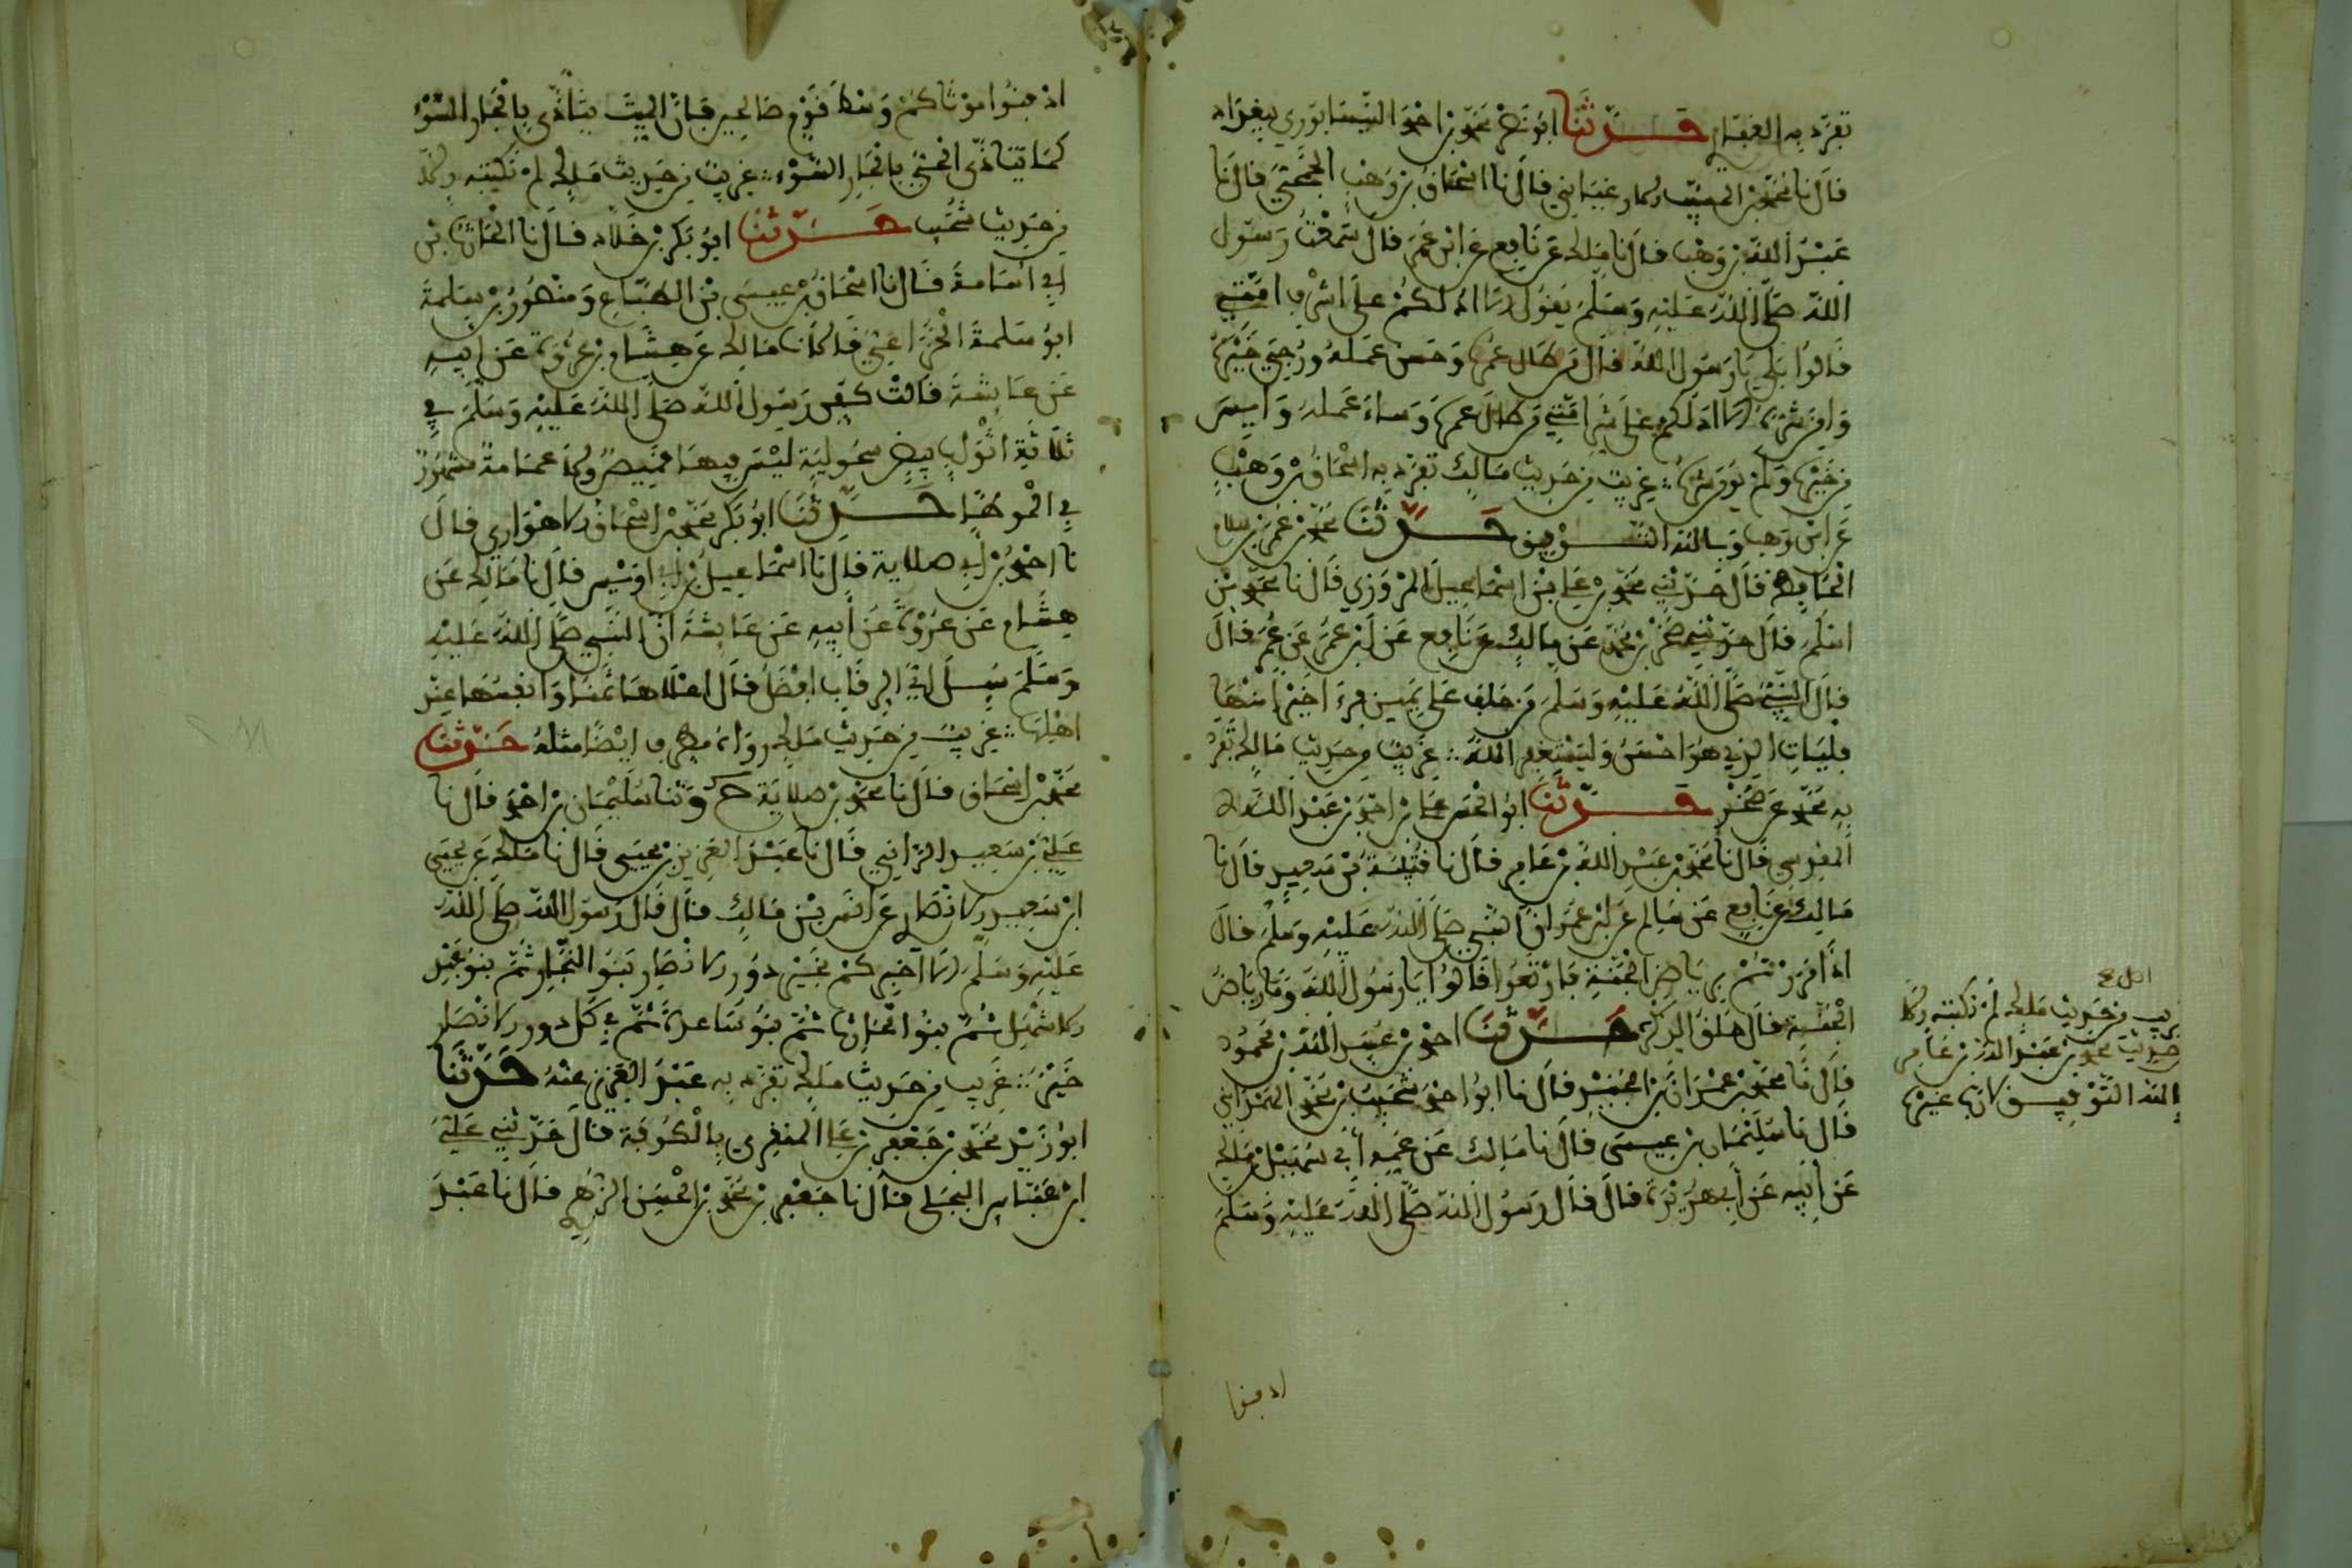 تفرد به القعنبي حدثنا ابو نصر محمد بن احمد النيسابوري ببغداد
قال نا محمد بن المسيب الارغياني قال نا اسحاق بن وهب الجمحي قال نا
عبد الله بن وهب قال نا ملك عن نافع عن ابن عمر قال سمعت رسول
الله صلى الله عليه وسلم يقول الا ادلكم على اشراف امتي
قالوا بلى يا رسول الله قال من طال عمره وحسن عمله ورجي خيره
الا ادلكم على شر امتي من طال عمره وساء عمله وايس
من خيره ولم يومن شره غريب من حديث مالك تفرد به اسحاق بن وهب
عن ابن وهب وبالله التوفيق حدثنا محمد بن عمر بن سلم
الحافظ قال حدثني محمد بن علي بن اسماعيل المروزي قال نا محمد بن
اسلم قال حدثني صخر بن محمد عن مالك عن نافع عن ابن عمر عن عمر قال
قال النبي صلى الله عليه وسلم من حلف على يمين فرءا خيرا منها
فليات الذي هو احسن وليستغفر الله غريب من حديث مالك تفرد
به محمد عن صخر حدثنا ابو الحسن علي بن احمد بن عبد الله
المقدسي قال نا محمد بن عبد الله بن عامر قال نا قتيبة بن سعيد قال نا
مالك عن نافع عن سالم عن ابن عمر ان النبي صلى الله عليه وسلم قال
اذا مررتم برياض الجنة فارتعوا قالوا يا رسول الله وما رياض
الجنة قال حلق الذكر حدثنا احمد بن عبيد الله بن محمود
قال نا محمد بن عمران بن الجنيد قال نا ابو احمد شعيب بن محمد الهمداني
قال نا سليمان بن عيسى قال نا مالك عن عمه ابي سهيل بن ملك
عن ابيه عن ابي هريرة قال قال رسول الله صلى الله عليه وسلم
ادفنوا
اصل صح
غريب من حديث ملك لم نكتبه الا
حديث محمد بن عبد الله بن عامر
الله التوفيق لا رب غيره
ادفنوا موتاكم وسط قوم صالحين فان الميت يتاذى بالجار السوء
كما يتاذى الحي بالجار السوء غريب من حديث ملك لم نكتبه الا
من حديث شعيب حدثنا ابو بكر بن خلاد قال نا الحارث بن
ابي اسامة قال نا اسحاق بن عيسى بن الطباع ومنصور بن سلمة
ابو سلمة الخزاعي قالا نا مالك عن هشام بن عروة عن ابيه
عن عايشة قالت كفن رسول الله صلى الله عليه وسلم في
ثلاثة اثواب بيض سحولية ليس فيها قميص ولا عمامة مشهور
في الموطا حدثنا ابو بكر محمد بن اسحاق الاهوازي قال
نا احمد بن ابي صلاية قال نا اسماعيل بن ابي اويس قال نا مالك عن
هشام عن عروة عن ابيه عن عايشة ان النبي صلى الله عليه
وسلم سيل اي الرقاب افضل قال اعلاها ثمنا وانفسها عند
اهلها غريب من حديث ملك رواه مطرف ايضا مثله حدثنا
محمد بن اسحاق قال نا محمد بن صلاية ح وثنا سليمان بن احمد قال نا
علي بن سعيد الرازي قال نا عبد العزيز بن يحيى قال نا ملك عن يحيى
ابن سعيد الانصاري عن انس بن مالك قال قال رسول الله صلى الله
عليه وسلم الا اخبركم بخير دور الانصار بنو النجار ثم بنو عبد
الاشهل ثم بنو الحارث ثم بنو ساعدة ثم في كل دور الانصار
خير غريب من حديث ملك تفرد به عبد العزيز عنه حدثنا
ابو زيد محمد بن جعفر بن علي المنقري بالكوفة قال حدثني علي
ابن عباس البجلي قال نا جعفر بن محمد بن الحسن الزهري قال نا عبد